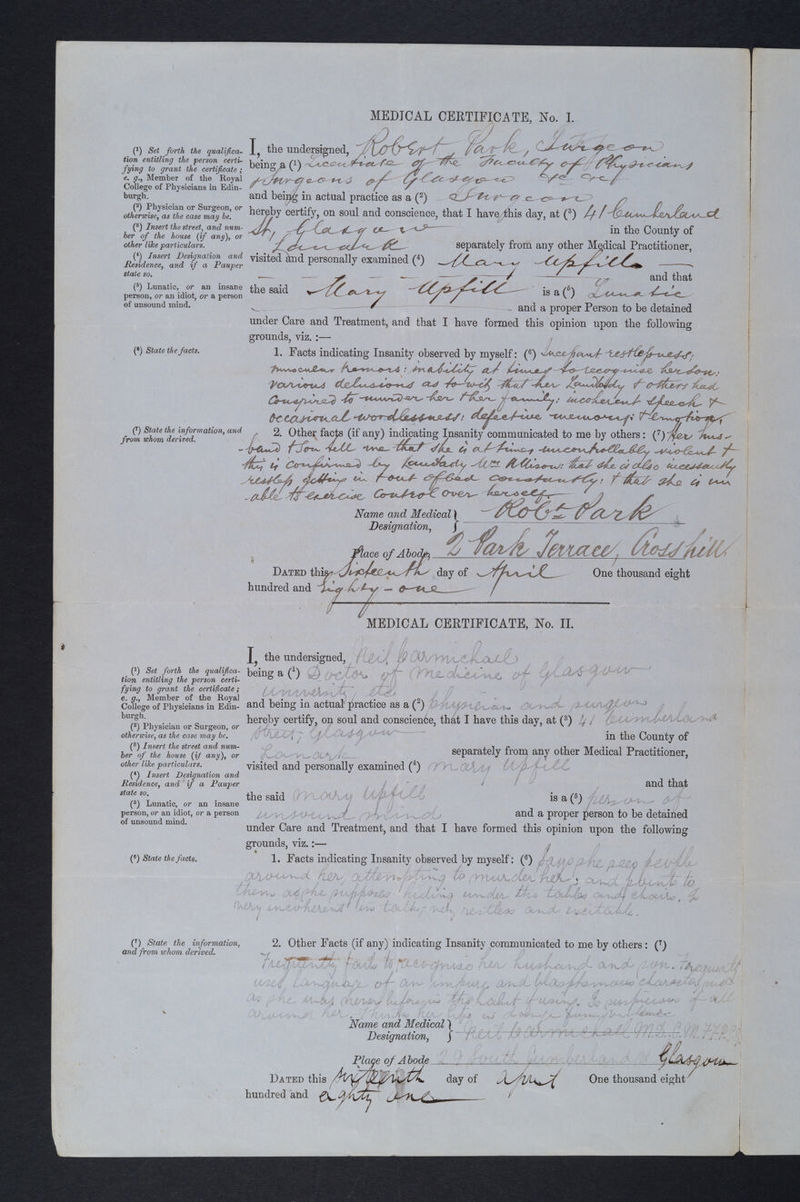 MEDICAL CERTIFICATE, No. I.
(¹) Set forth the qualifica-
tion entitling the person certi-
fying to grant the certificate;
e. g., Member of the Royal
College of Physicians in Edin-
burgh.
(²) Physician or Surgeon, or
otherwise, as the case may be.
(³) Insert the street, and num-
ber of the house (if any), or
other like particulars.
(⁴) Insert Designation and
Residence, and if a Pauper
state so.
(⁵) Lunatic, or an insane
person, or an idiot, or a person
of unsound mind.
(⁶) State the facts.
(⁷) State the information, and
from whom derived.
I, the undersigned, Robert Park, Surgeon
being a (¹) Licentiate of the Faculty of Physicians
& Surgeons of Glasgow
and being in actual practice as a (²) Surgeon
hereby certify, on soul and conscience, that I have this day, at (³) 41 Cumberland
St, Glasgow in the County of
Lanark separately from any other Medical Practitioner,
visited and personally examined (⁴) Mary Upfill
and that
the said Mary Upfill is a (⁵) Lunatic
and a proper Person to be detained
under Care and Treatment, and that I have formed this opinion upon the following
grounds, viz. :—
1. Facts indicating Insanity observed by myself: (⁶) Incessant restlessness;
muscular tremors: inability at times to recognise her son:
various delusions as to wit that her Landlady & others had
Conspired to murder her & her family: incoherent speech &
occasional wordlessness: defective memory: & emotions
2. Other facts (if any) indicating Insanity communicated to me by others: (⁷) her hus-
band & Son tell me that she is at times uncontrollably violent &
this is confirmed by landlady Mrs Allison: that she is also incessantly
restless getting in & out of bed constantly: & that she is un
-able to exercise Control over herself
Name and Medical Designation, } Robt Park
Place of Abode, 2 Park Terrace, Crosshill
DATED this Sixteenth day of April One thousand eight
hundred and Eighty-one
MEDICAL CERTIFICATE, No. II.
(¹) Set forth the qualifica-
tion entitling the person certi-
fying to grant the certificate;
e. g., Member of the Royal
College of Physicians in Edin-
burgh.
(²) Physician or Surgeon, or
otherwise, as the case may be.
(³) Insert the street and num-
ber of the house (if any), or
other like particulars.
(⁴) Insert Designation and
Residence, and if a Pauper
state so.
(⁵) Lunatic, or an insane
person, or an idiot, or a person
of unsound mind.
(⁶) State the facts.
(⁷) State the information,
and from whom derived.
I, the undersigned, Neil Carmichael
being a (¹) Doctor of Medicine of Glasgow
University etc
and being in actual practice as a (²) Physician and surgeon
hereby certify, on soul and conscience, that I have this day, at (³) 41 Cumberland
Street, Glasgow in the County of
Lanark separately from any other Medical Practitioner,
visited and personally examined (⁴) Mary Upfill
and that
the said Mary Upfill is a (⁵) person of
unsound mind and a proper person to be detained
under Care and Treatment, and that I have formed this opinion upon the following
grounds, viz. :—
1. Facts indicating Insanity observed by myself: (⁶) Says she sees people
around her, attempting to murder her; and points to
them as she supposes hiding under the tables and chairs. Is
very incoherent in talk, very restless and excitable.
2. Other Facts (if any) indicating Insanity communicated to me by others: (⁷)
Frequently fails to recognise her husband and son. Frequently
uses language of an impure and blasphemous character
as she was never before in the habit of using. Is suspicious of all
around her. Thinks her life is
Name and Medical Designation, } Neil Carmichael M.D. C.M.
Place of Abode 29 South Cumberland St Glasgow
DATED this Sixteenth day of April One thousand eight
hundred and eighty one